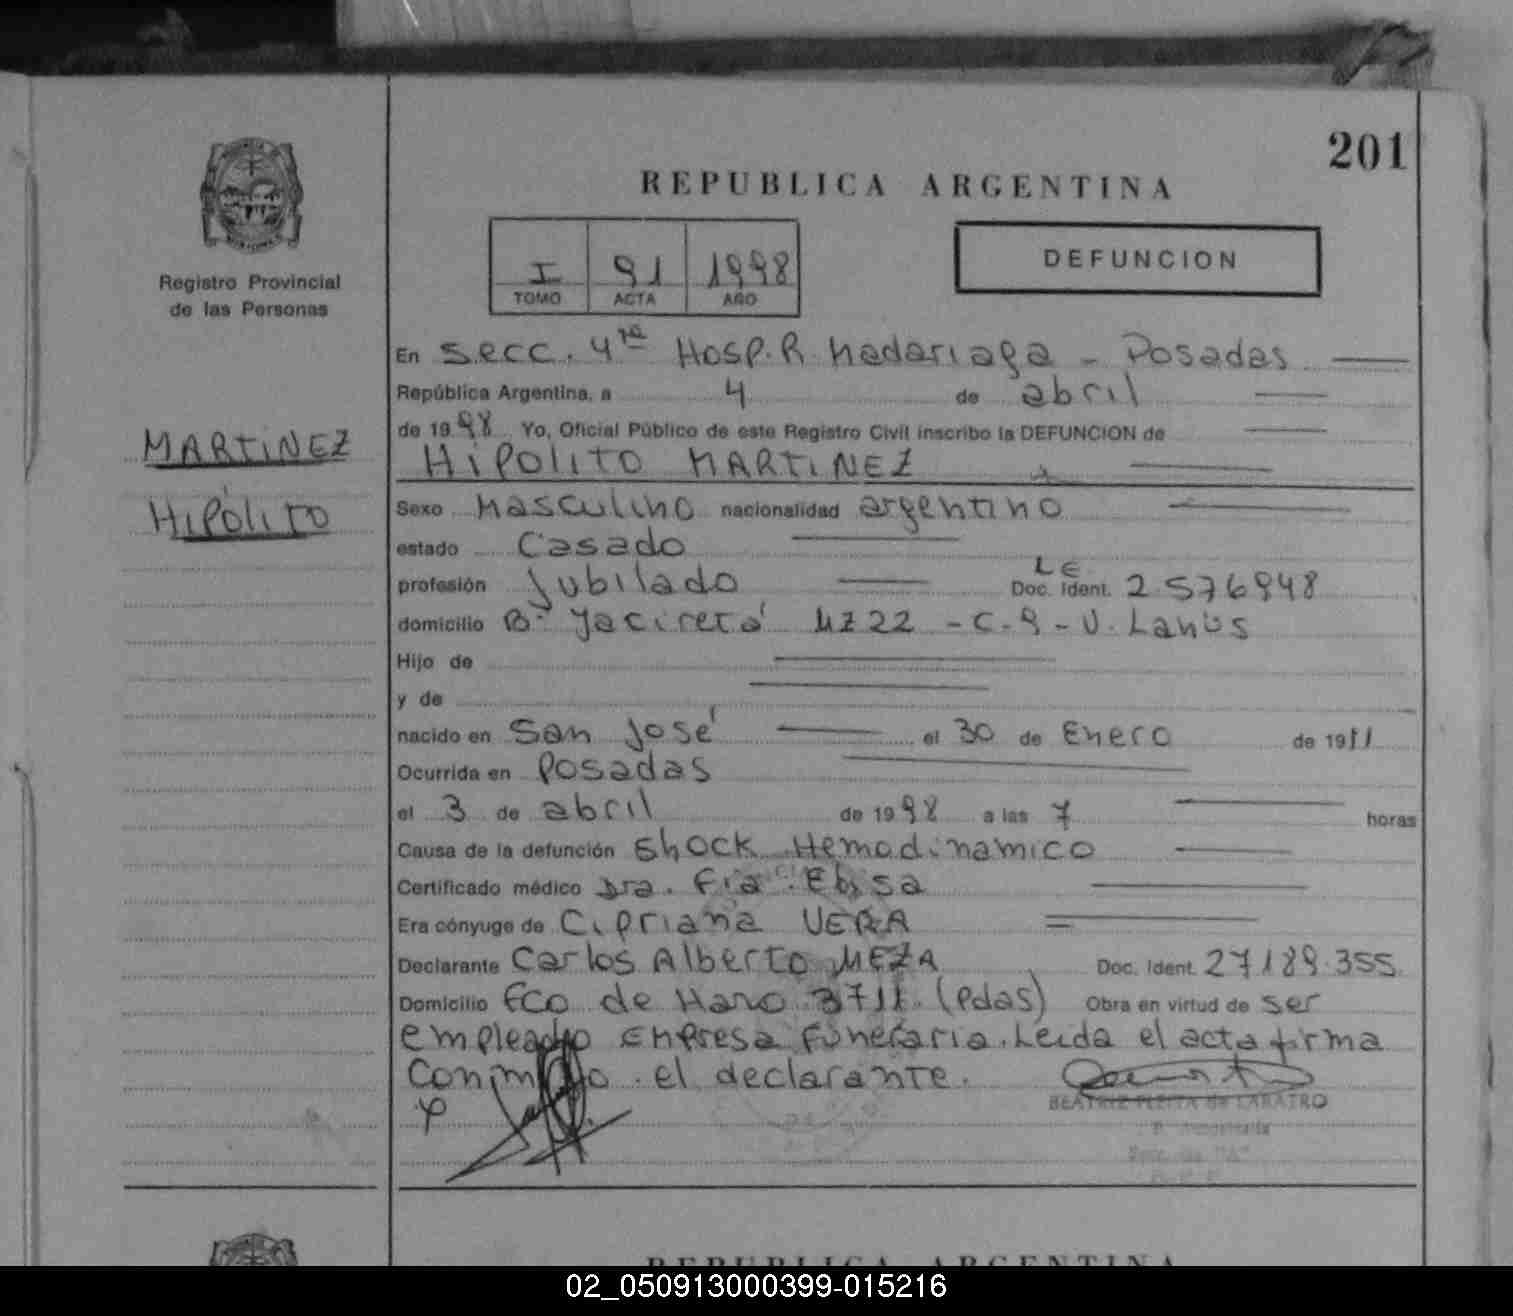 201
REPUBLICA ARGENTINA
Registro Provincial
de las Personas
I 91 1998
TOMO ACTA AÑO
DEFUNCION
En Secc. 4ta Hosp. R. Madariaga - Posadas
República Argentina, a 4 de abril
de 1998 Yo, Oficial Público de este Registro Civil inscribo la DEFUNCION de
MARTINEZ
HIPÓLITO
HIPOLITO MARTINEZ
Sexo Masculino nacionalidad argentino
estado Casado
profesión Jubilado L E Doc. Ident. 2.576948
domicilio B° Yacireta' MZ 22 - C. 9 - V. Lanús
Hijo de
y de
nacido en San José el 30 de Enero de 1911
Ocurrida en Posadas
el 3 de abril de 1998 a las 7 horas
Causa de la defunción Shock Hemodinamico
Certificado médico Dra. Elisa
Era cónyuge de Cipriana VERA
Declarante Carlos Alberto MEZA Doc. Ident. 27189.355
Domicilio Fco de Haro 3711 (Pdas) Obra en virtud de ser
empleado Empresa Funeraria. Leida el acta firma
conmigo el declarante.
BEATRIZ PLEITA de LABATRO
REPUBLICA ARGENTINA
02_050913000399-015216